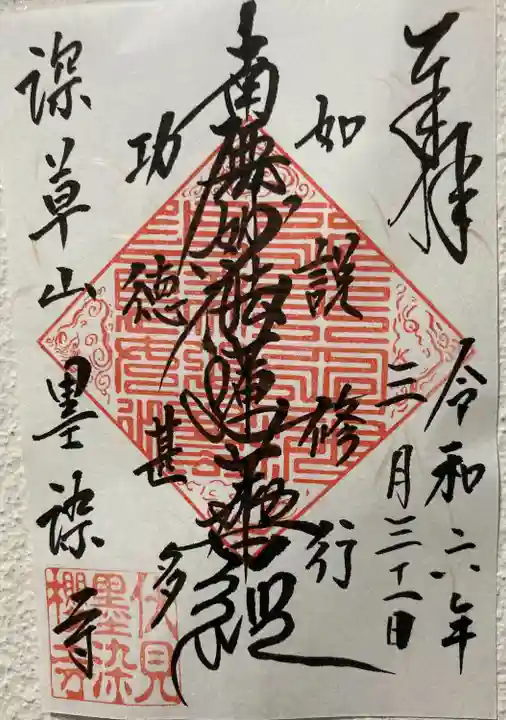 奉拝
令和六年
三月三十一日
如説修行
南無妙法蓮華経
功徳甚多
深草山 墨染寺
伏見
墨染
櫻寺